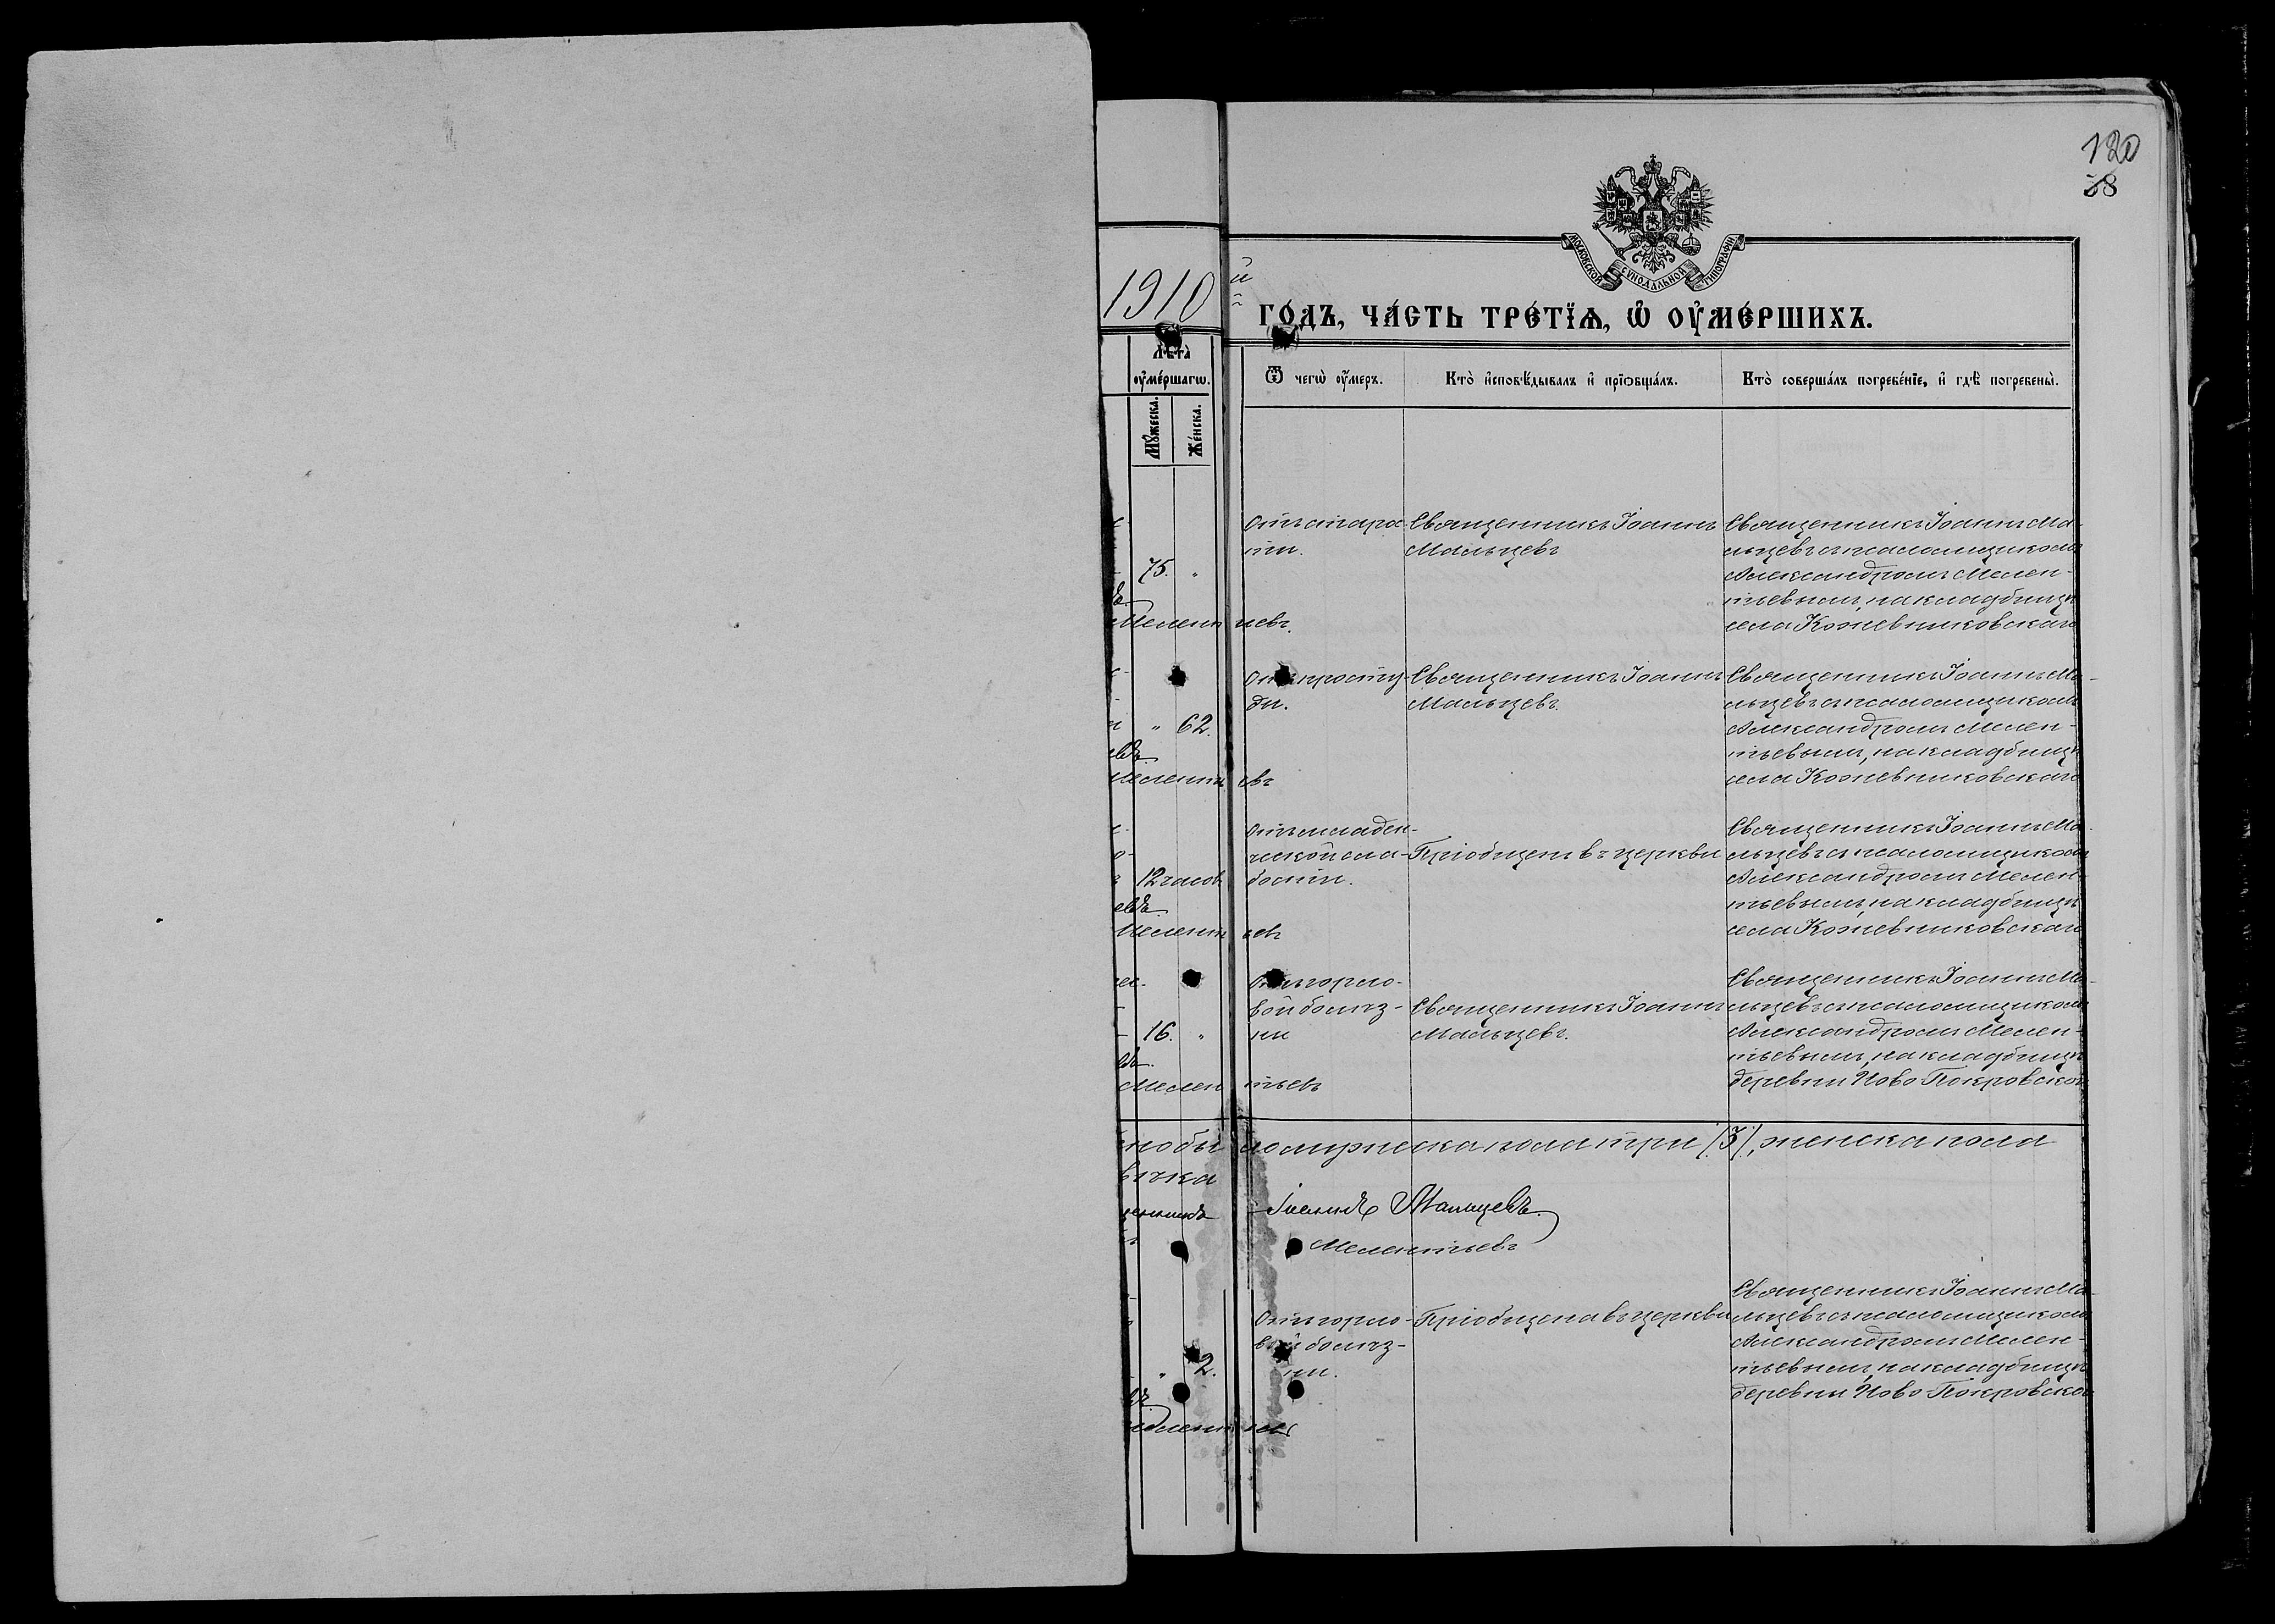 120
58
МОСКОВСКОЙ СѴНОДАЛЬНОЙ ТИПОГРАФІИ
1910 й
го́дъ, ча́сть тре́тїѧ, ѡ҆ ᲂу҆ме́ршихъ.
Лѣ́та̀ ᲂу҆ме́ршагѡ.
Мꙋ́жеска.
Же́нска.
Ѿ чегѡ̀ ᲂу҆́меръ.
Кто̀ и҆сповѣ́дывалъ и҆ прїѡбща́лъ.
Кто̀ соверша́лъ погребе́нїе, и҆ гдѣ̀ погребены̀.
75. "
отъ старо-
сти.
Священникъ Іоаннъ
Мальцевъ
Священникъ Іоаннъ Ма-
льцевъ съ псаломщикомъ
Александромъ Мелен-
тьевымъ, на кладбищѣ
села Кожевниковскаго
Мелентьевъ.
" 62.
отъ просту-
ды.
Священникъ Іоаннъ
Мальцевъ.
Священникъ Іоаннъ Ма-
льцевъ съ псаломщикомъ
Александромъ Мелен-
тьевымъ, на кладбищѣ
села Кожевниковскаго
Мелентьевъ
12 часов
отъ младен-
ческой сла-
бости.
Пріобщенъ въ церкви
Священникъ Іоаннъ Ма-
льцевъ съ псаломщикомъ
Александромъ Мелен-
тьевымъ, на кладбищѣ
села Кожевниковскаго
Мелентьевъ
16. "
отъ горло-
вой болѣз-
ни
Священникъ Іоаннъ
Мальцевъ.
Священникъ Іоаннъ Ма-
льцевъ съ псаломщикомъ
Александромъ Мелен-
тьевымъ, на кладбищѣ
деревни Ново Покровской
Мелентьевъ
мужеска пола три /3/, женска пола
Іоаннъ Мальцевъ.
Мелентьевъ
" 2.
Отъ горло-
вой болѣз-
ни.
Пріобщена въ церкви
Священникъ Іоаннъ Ма-
льцевъ съ псаломщикомъ
Александромъ Мелен-
тьевымъ, на кладбищѣ
деревни Ново Покровской